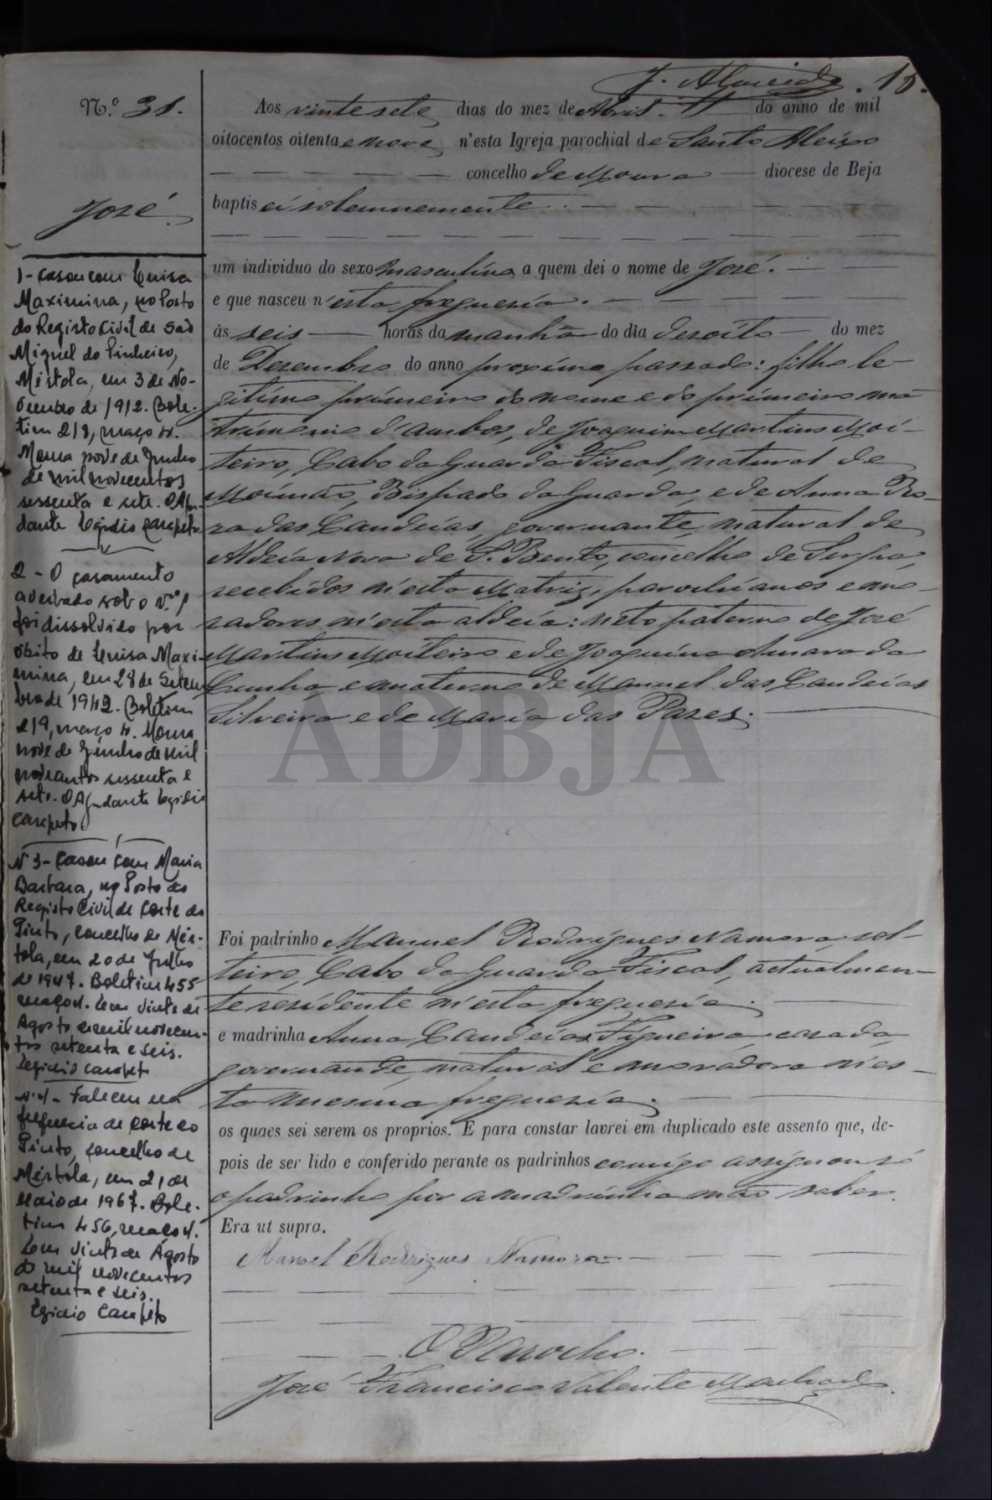 J. Almeida. 15.
N.º 31.
José
Aos vinte sete dias do mez de Abril do anno de mil
oitocentos oitenta e nove n'esta Igreja parochial de Santo Aleixo
concelho de Moura diocese de Beja
baptisei solemnemente
um individuo do sexo masculino a quem dei o nome de José.
e que nasceu n'esta freguezia.
ás seis horas da manhã do dia desoito do mez
de Dezembro do anno proximo passado: filho le-
gitimo primeiro do nome e do primeiro ma-
trimonio d'ambos, de Joaquim Martins Moi-
teiro, Cabo da Guarda Fiscal, natural de
Bispado da Guarda, e de Anna Ro-
za das Candeias, governante, natural de
Aldeia Nova de S. Bento, concelho de Serpa,
recebidos n'esta Matriz, parochianos e mo-
radores n'esta aldeia: neto paterno de José
Martins Moiteiro e de Joaquina Amara da
Cunha e materno de Manuel das Candeias
Silveira e de Maria das Pazes.
Foi padrinho Manuel Rodrigues Namora sol-
teiro, Cabo da Guarda Fiscal, actualmen-
te residente n'esta freguezia.
e madrinha Anna Candeias Figueira casada
governande, natural e moradora n'es-
ta mesma freguezia.
os quaes sei serem os proprios. E para constar lavrei em duplicado este assento que, de-
pois de ser lido e conferido perante os padrinhos comigo assignou só
o padrinho por a madrinha não saber.
Era ut supra.
Manoel Rodrigues Namora
O Parocho.
José Francisco Valente Machado.
1- Casou com Luisa
Maximina, no Posto
do Registo Civil de São
Miguel do Pinheiro,
Mértola, em 3 de No-
vembro de 1912. Bole-
tim 218, maço 4.
Moura nove de Junho
de mil novecentos
sessenta e sete. O Aju-
dante Egidio Campeto
2 - O casamento
averbado sob o n.º 1
foi dissolvido por
óbito de Luisa Maxi-
mina, em 28 de Setem-
bro de 1942. Boletim
219, maço 4. Moura
nove de Junho de mil
novecentos sessenta e
sete. O Ajudante Egidio
Campeto
Nº 3- Casou com Maria
Barbara, no Posto do
Registo Civil de Corte do
Pinto, concelho de Mér-
tola, em 20 de Julho
de 1947. Boletim 455
maço 4. Em vinte de
Agosto de mil novecen-
tos setenta e seis.
Egidio Campeto
Nº 4- Faleceu na
freguesia de Corte do
Pinto, concelho de
Mértola, em 21 de
Maio de 1967. Bole-
tim 456, maço 4.
Em vinte de Agosto
de mil novecentos
setenta e seis.
Egidio Campeto
ADBJA